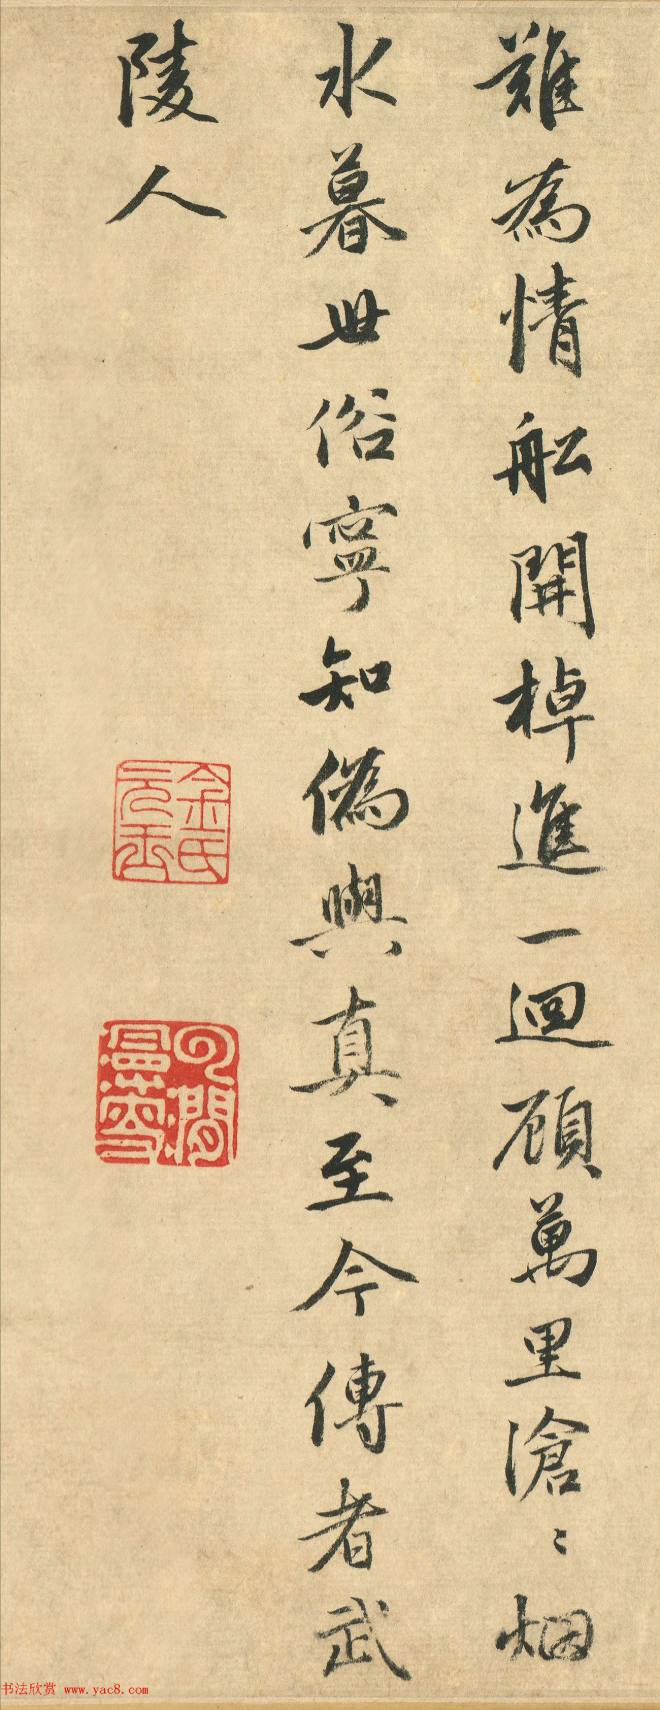 難為情舩開棹進一迴顧萬里滄〻烟
水暮世俗寧知偽與真至今傳者武
陵人
余氏
可閑
书法欣赏 www.yac8.com